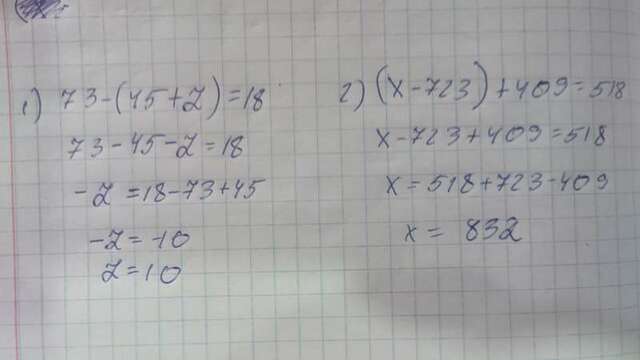 1) 73-(45+Z)=18
73-45-Z=18
-Z=18-73+45
-Z=-10
Z=10
2) (x-723)+409=518
x-723+409=518
x=518+723-409
x= 832